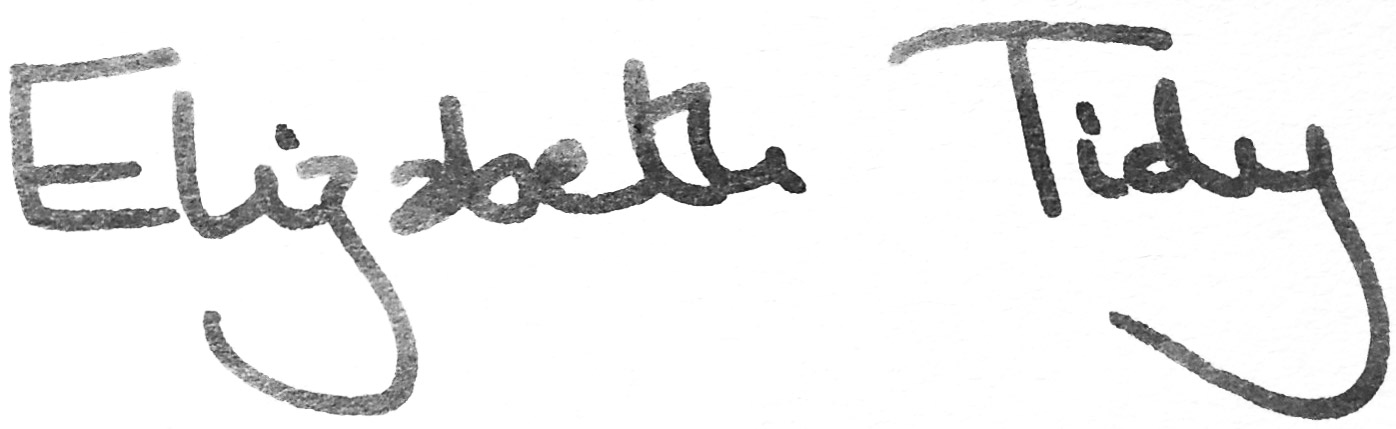 Elizabeth Tidy